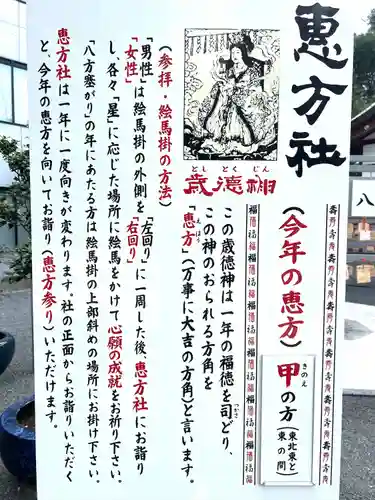 恵方社
歳徳神
としとくじん
(今年の恵方)
甲の方(東北東と東の間)
きのえ
この歳徳神は一年の福徳を司どり、
つかさ
この神のおられる方角を
「恵方」(万事に大吉の方角)と言います。
えほう
(参拝・絵馬掛の方法)
「男性」は絵馬掛の外側を「左回り」に一周した後、恵方社にお詣り
「女性」「右回り」
し、各々「星」に応じた場所に絵馬をかけて心願の成就をお祈り下さい。
「八方塞がり」の年にあたる方は絵馬掛の上部斜めの場所にお掛け下さい。
恵方社は一年に一度向きが変わります。社の正面からお詣りいただく
と、今年の恵方を向いてお詣り(恵方参り)いただけます。
八